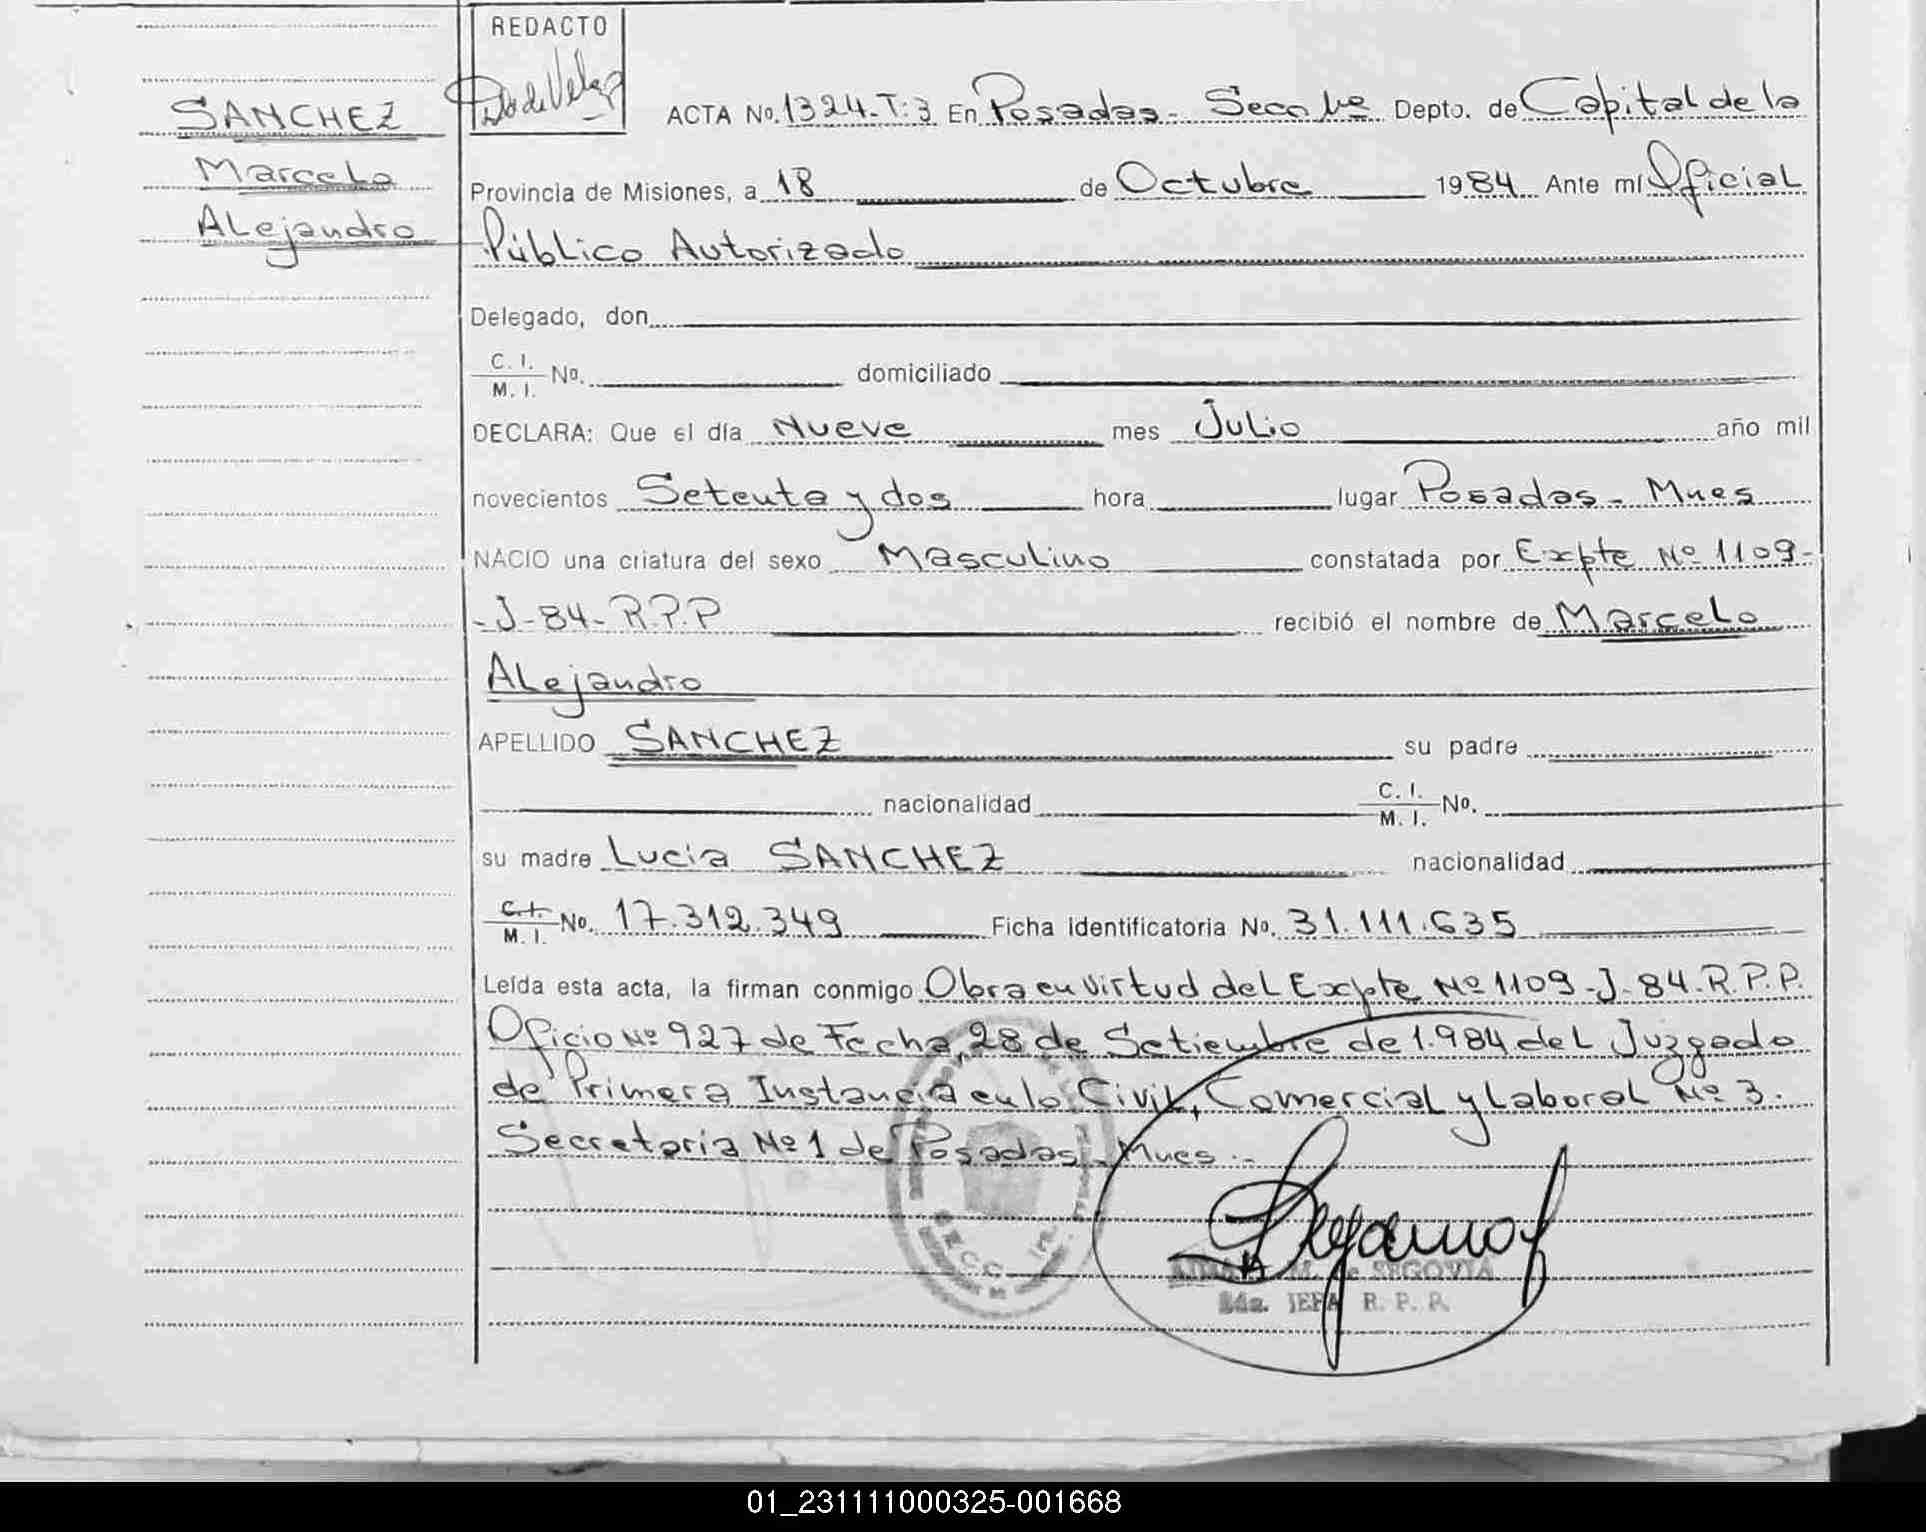 REDACTO
SANCHEZ
Marcelo
Alejandro
ACTA No. 1324-T:3 En Posadas- Depto. de Capital de la
Provincia de Misiones, a 18 de Octubre 1984 Ante mí Oficial
Público Autorizado
Delegado, don
C. I.
M. I. No. domiciliado
DECLARA: Que el día Nueve mes Julio año mil
novecientos Setenta y dos hora lugar Posadas- Mnes
NACIO una criatura del sexo Masculino constatada por Expte Nº 1109-
-J-84-R.P.P recibió el nombre de Marcelo
Alejandro
APELLIDO SANCHEZ su padre
nacionalidad C. I.
M. I. No.
su madre Lucia SANCHEZ nacionalidad
C. I.
M. I. No. 17.312.349 Ficha Identificatoria No. 31.111.635
Leída esta acta, la firman conmigo Obra en virtud del Expte Nº 1109-J-84-R.P.P.
Oficio Nº 927 de Fecha, 28 de Setiembre de 1.984 del Juzgado
de Primera Instancia en lo Civil, Comercial y Laboral Nº 3.
Secretaria Nº 1 de Posadas- Mnes.-
M. de SEGOVIA
2da. JEFA R. P. P.
01_231111000325-001668